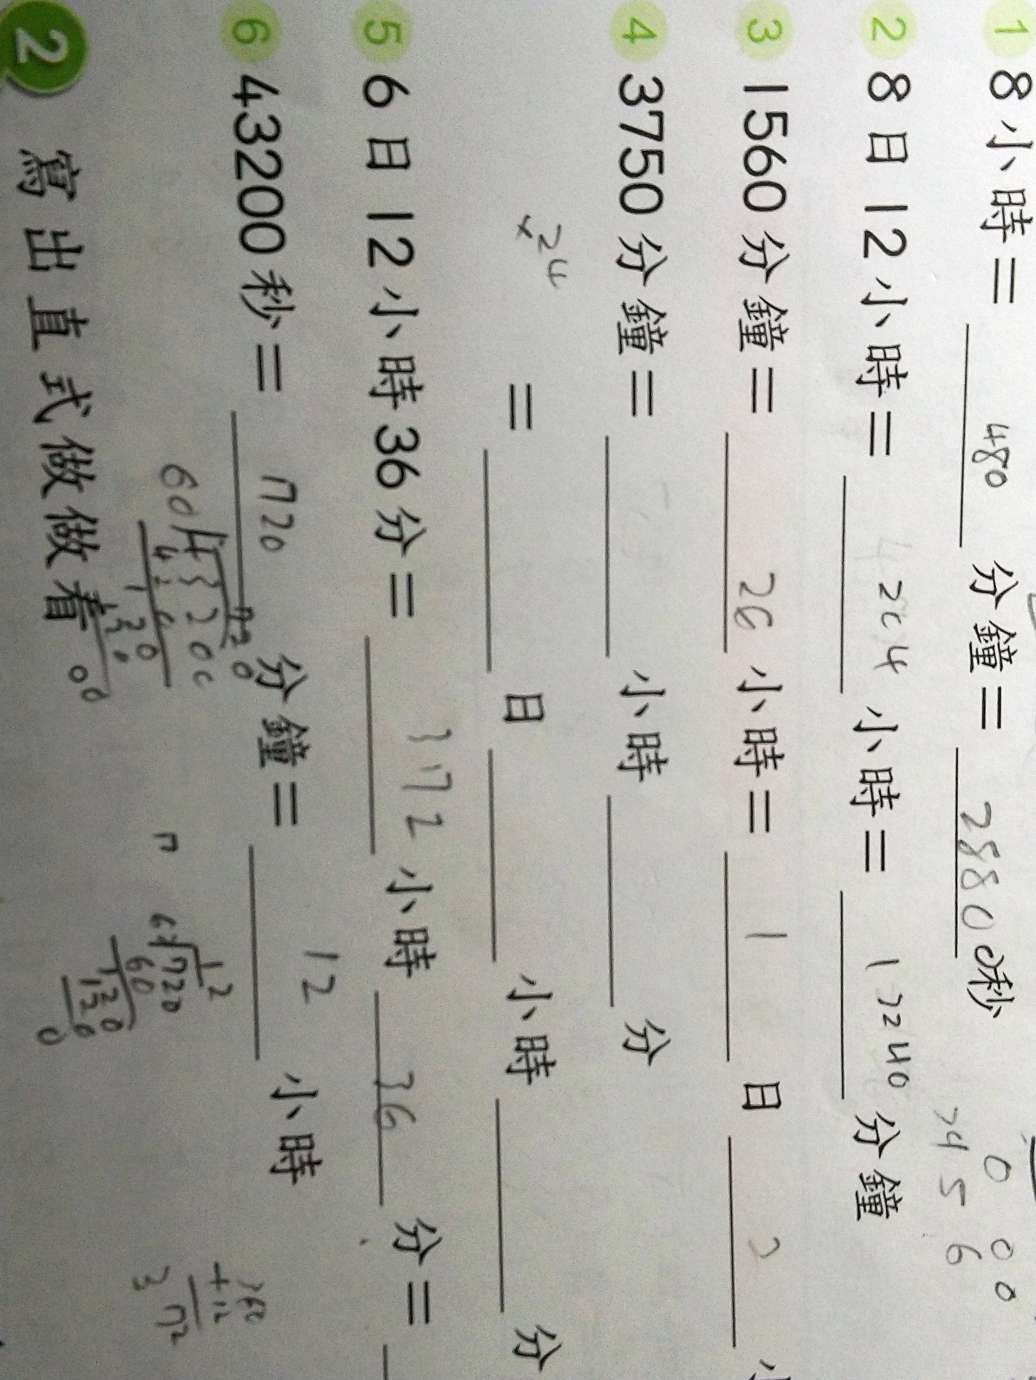 1 8小時= 480 分鐘= 28800 秒
2 8日12小時= 204 小時= 12240 分鐘
3 1560分鐘= 26 小時= 1 日 2 小
4 3750分鐘= 小時 分
×24
= 日 小時 分
5 6日12小時36分= 372 小時 36 分=
360
+12
372
6 43200秒= 720 分鐘= 12 小時
720
60 43200
120
120
00
12
60 720
60
120
120
0
2 寫出直式做做看